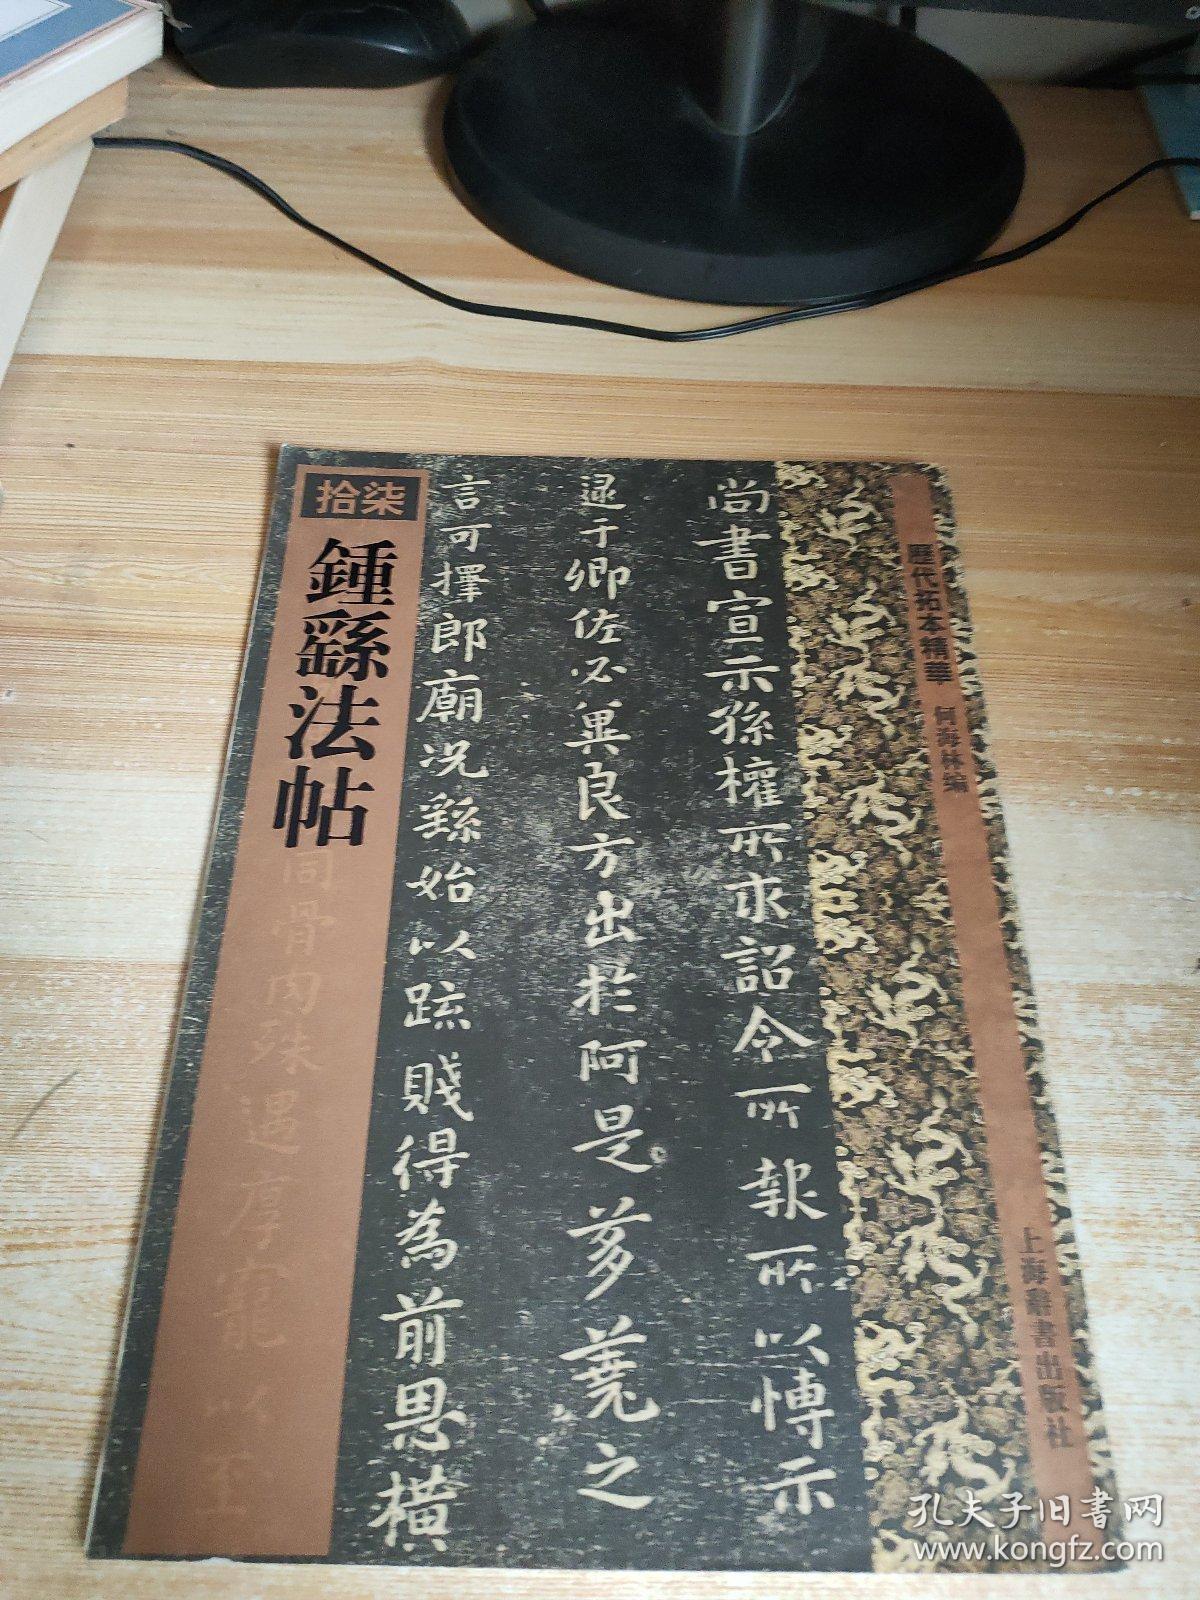 歷代拓本精華 何海林编
上海辭書出版社
尚書宣示孫權所求詔令所報所以博示
逮于卿佐必冀良方出於阿是芻蕘之
言可擇郎廟況繇始以疏賤得為前恩橫
拾柒
鍾繇法帖
同骨肉殊遇厚寵以至
孔夫子旧书网
www.kongfz.com